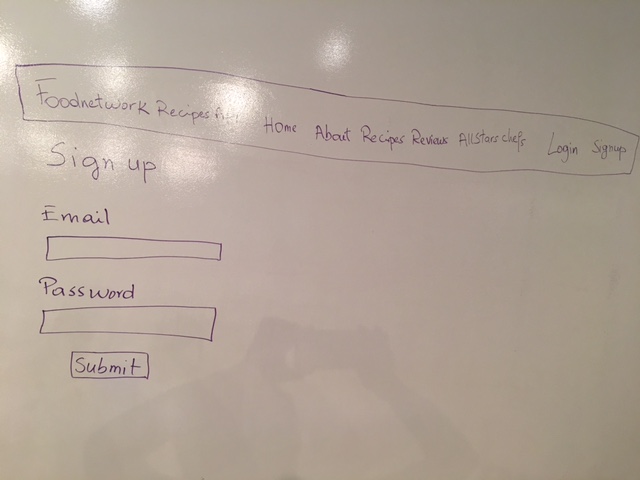 Foodnetwork Recipes Home About Recipes Reviews Allstars chefs Login Signup
Sign up
Email
Password
Submit